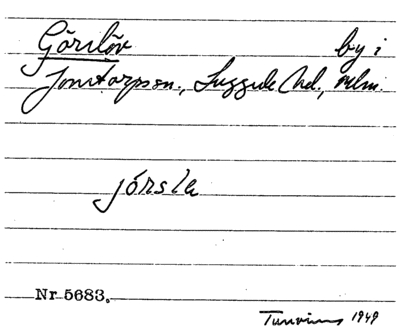 Görslöv by i
Jonstorpssn., Luggude hd., Mlm.
jórsla
Nr 5683.
Tunvius 1949